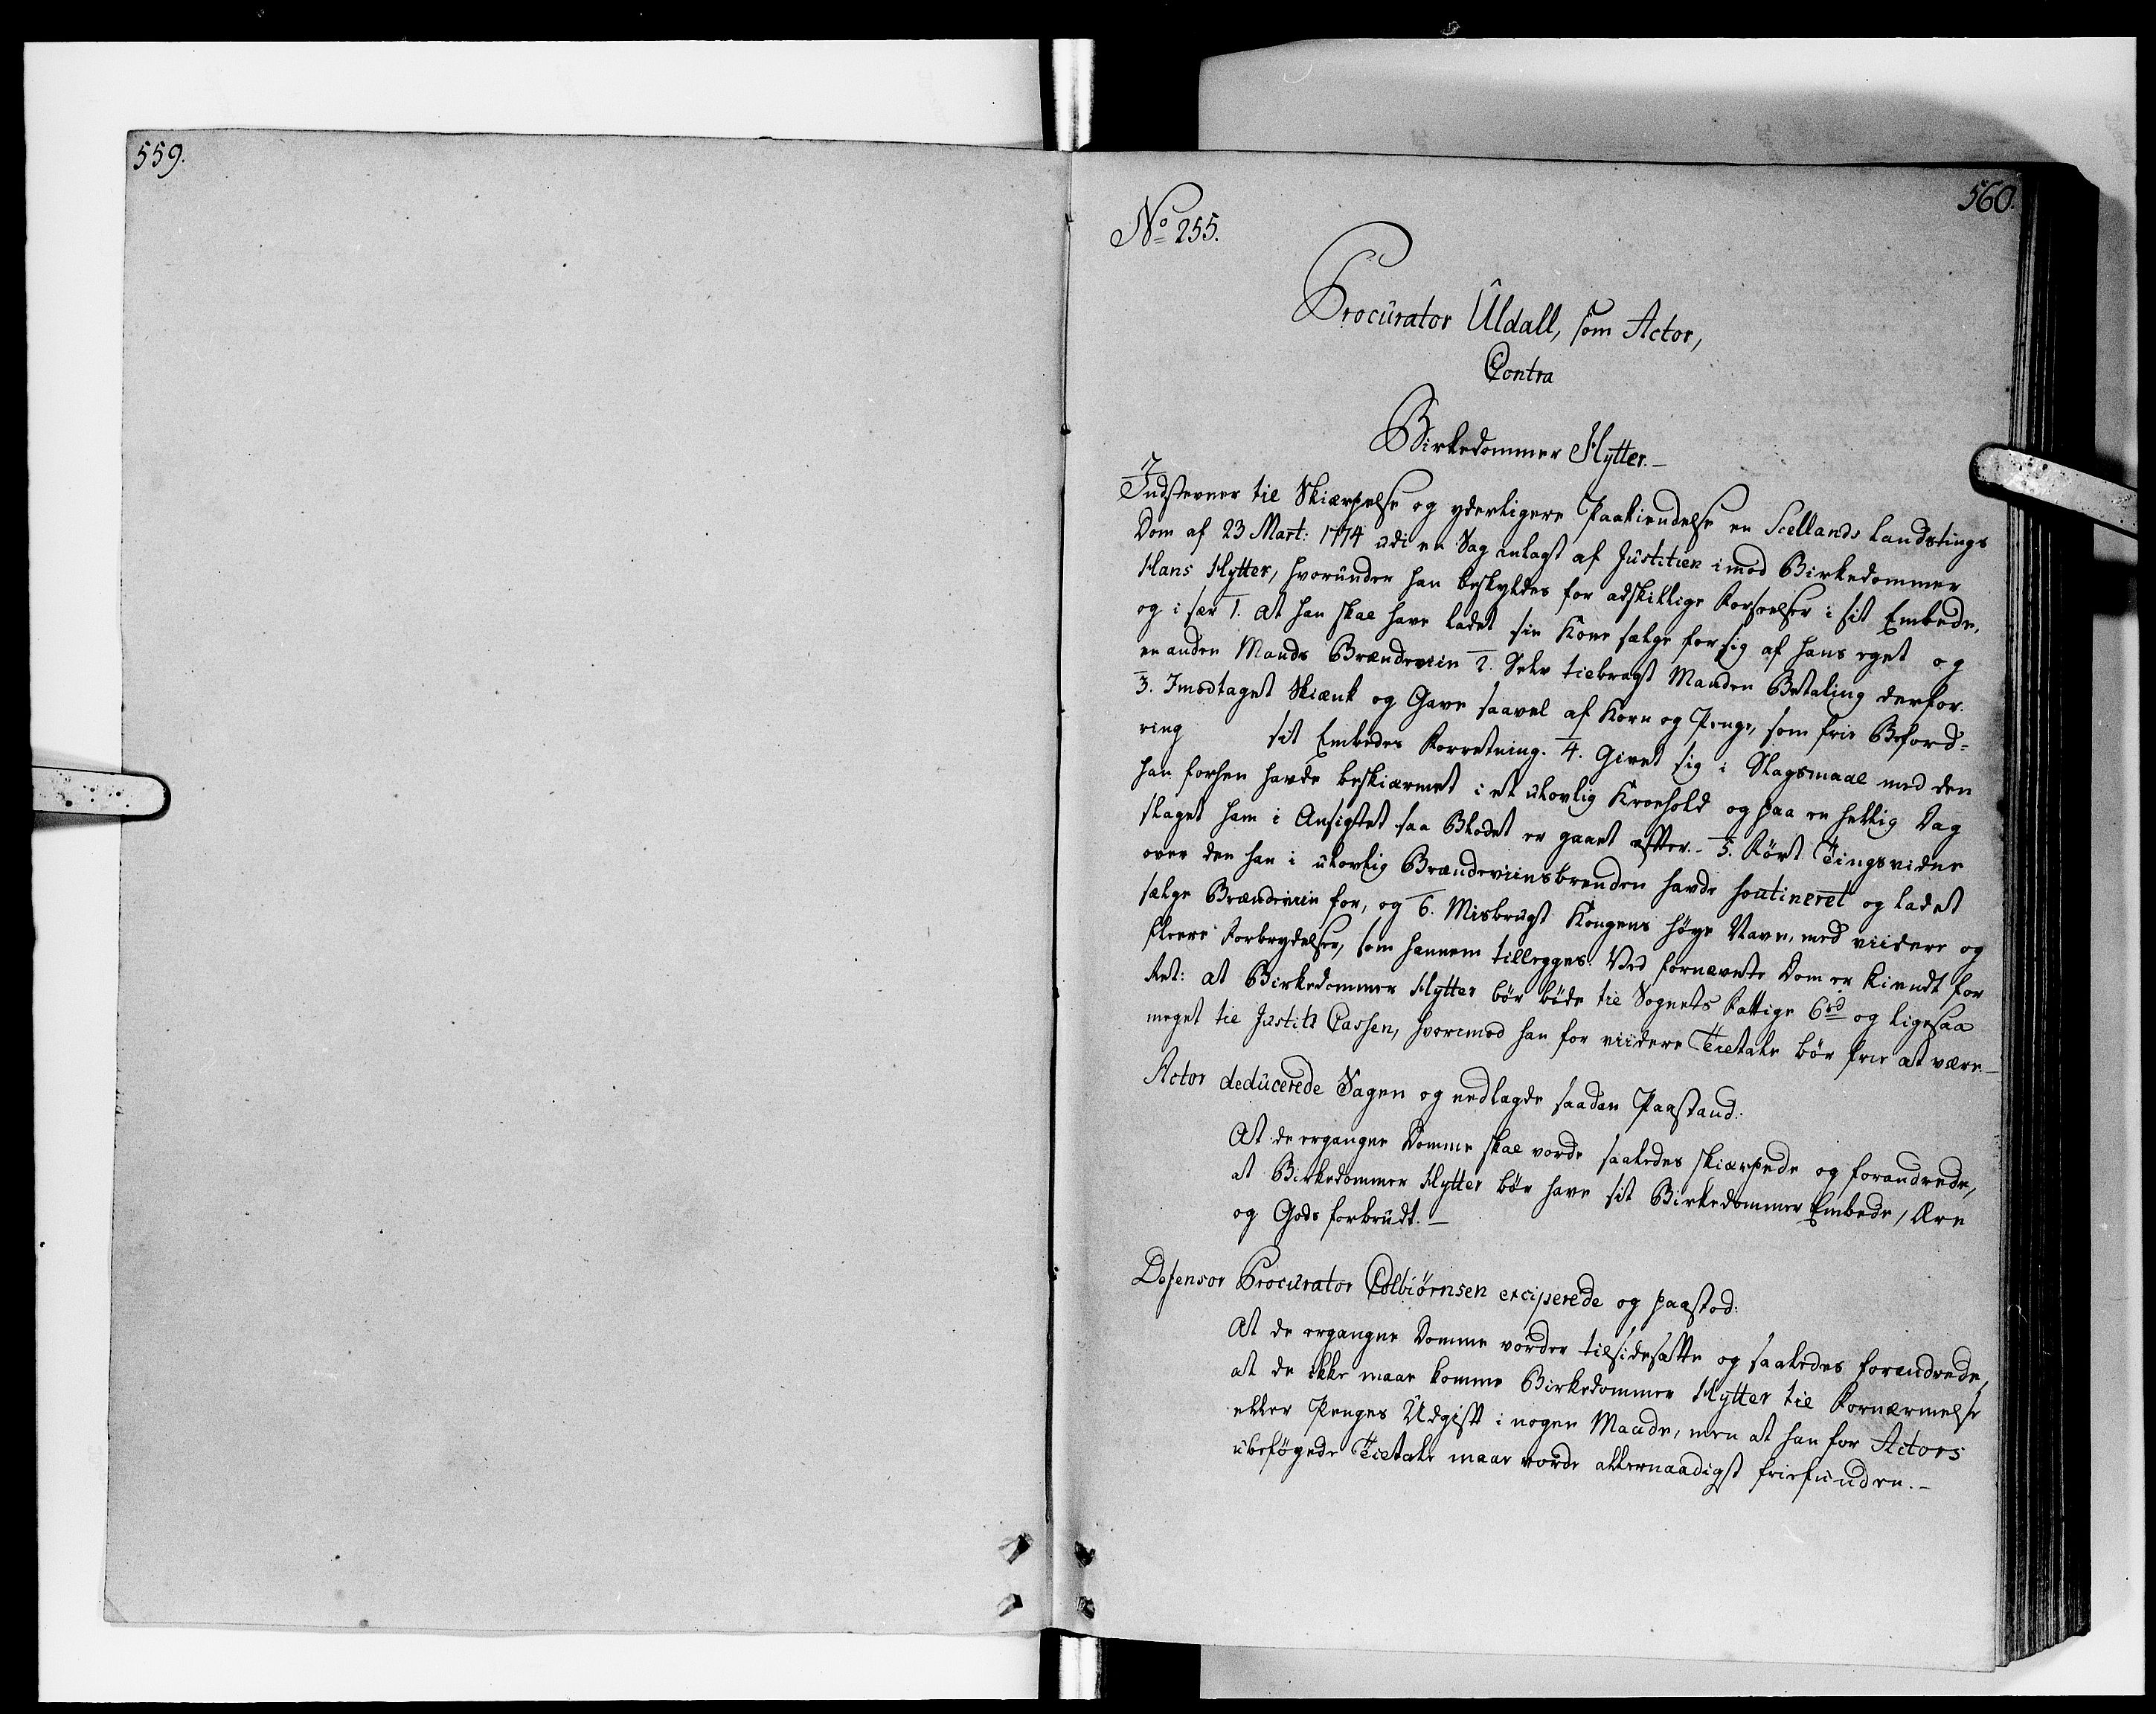 559.
560.
No 255.
Procurator Uldall, som Actor,
Contra
Birkedommer Hytter.
Indstevner til Skiærpelse og yderligere Paakiendelse en Siellands Landstings
Dom af 23 Mart: 1774 udi en Sag anlagt af Justitien imod Birkedommer
Hans Hytter, hvorunder han beskyldes for adskillige Forseelser i sit Embede,
og i sær 1. at han skal have ladet sin Kone sælge for sig af hans eget og
en anden Mands Brændeviin 2. Selv tilbragt Manden Betaling derfor.
3. Imodtaget Skiænk og Gave saavel af Korn og Penge, som frie Beford-
ring sit Embedes Forretning. 4. Givet sig i Slagsmaal med den
han forhen havde beskiærmet i et ulovlig Kroehold og paa en hellig Dag
slaget ham i Ansigtet saa Blodet er gaaet efter. 5. Ført Tingsvidne
over den han i ulovlig Brændeviinsbrenden havde soutineret og ladet
sælge Brændeviin for, og 6. Misbrugt Kongens høye Navn, med viidere og
fleere Forbrydelser, som hannem tillegges. Ved fornævnte Dom er kiendt for
Ret: at Birkedommer Hytter bør bøde til Sognets Fattige 6 rd og ligesaa
meget til Justits Cassen, hvorimod han for viidere Tiltale bør frie at være.
Actor deducerede Sagen og nedlagde saadan Paastand:
At de ergangne Domme skal vorde saaledes skiærpede og forandrede,
at Birkedommer Hytter bør have sit Birkedommer Embede, Ære
og Gods forbrudt.
Defensor Procurator Colbiørnsen exciperede og paastod:
At de ergangne Domme vorder tilsidesatte og saaledes forandrede,
at de ikke maae komme Birkedommer Hytter til Fornærmelse
eller Penges Udgift i nogen Maade, men at han for Actors
ubeføyede Tiltale maae vorde allernaadigst friefunden.